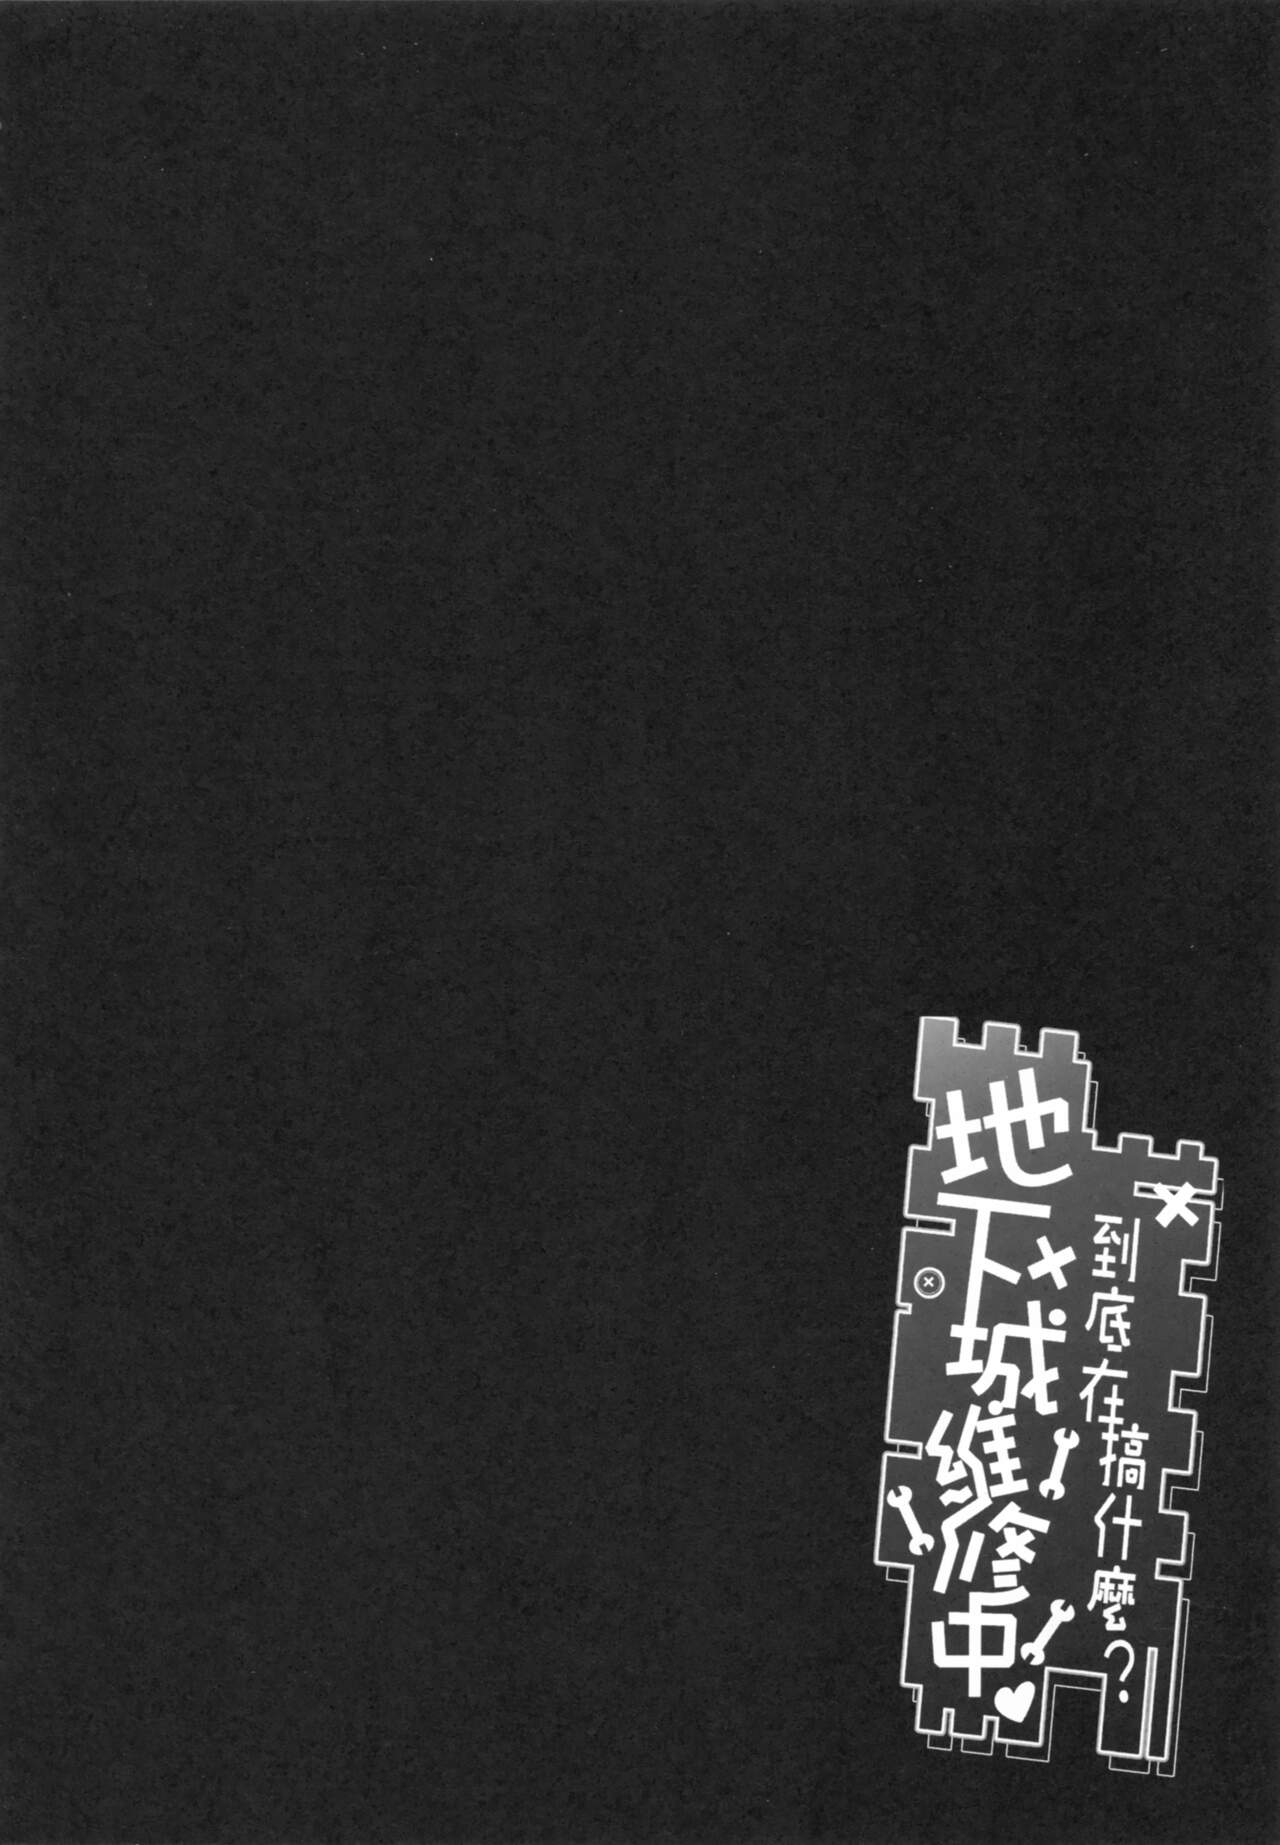 到底在搞什麼？
地下城維修中